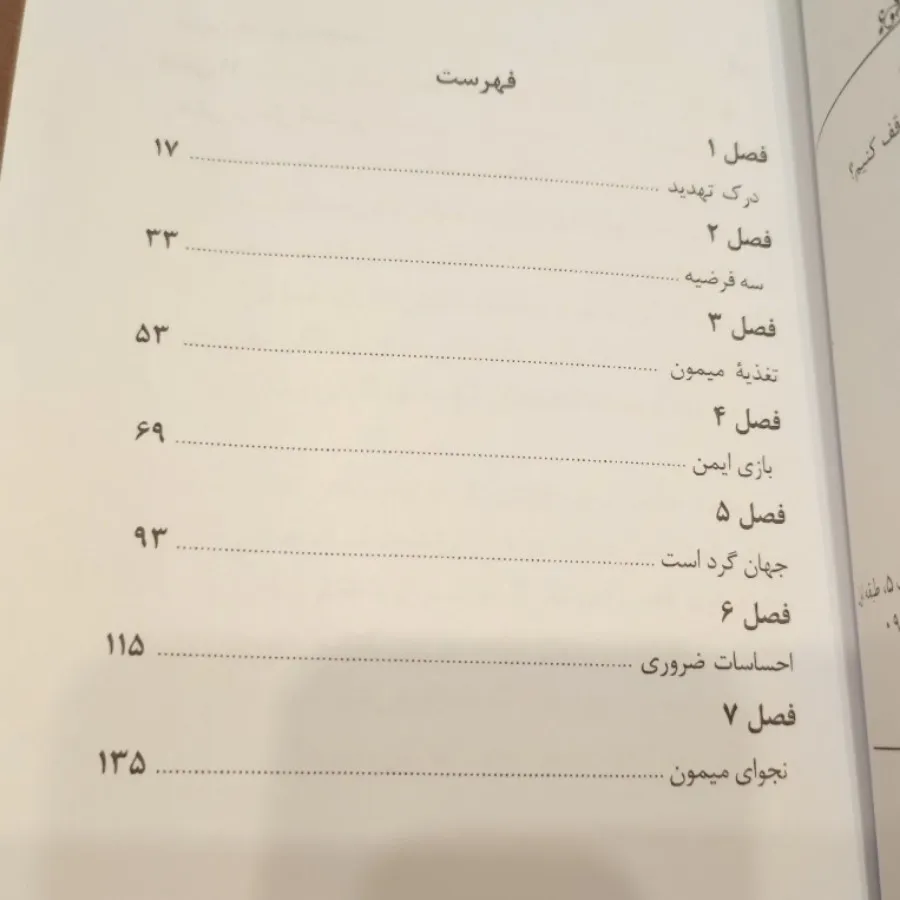 فهرست
فصل ۱
درک تهدید ........ ۱۷
فصل ۲
سه فرضیه ........ ۳۳
فصل ۳
تغذیهٔ میمون ........ ۵۳
فصل ۴
بازی ایمن ........ ۶۹
فصل ۵
جهان گرد است ........ ۹۳
فصل ۶
احساسات ضروری ........ ۱۱۵
فصل ۷
نجوای میمون ........ ۱۳۵
کنیم؟
۵، طبقه